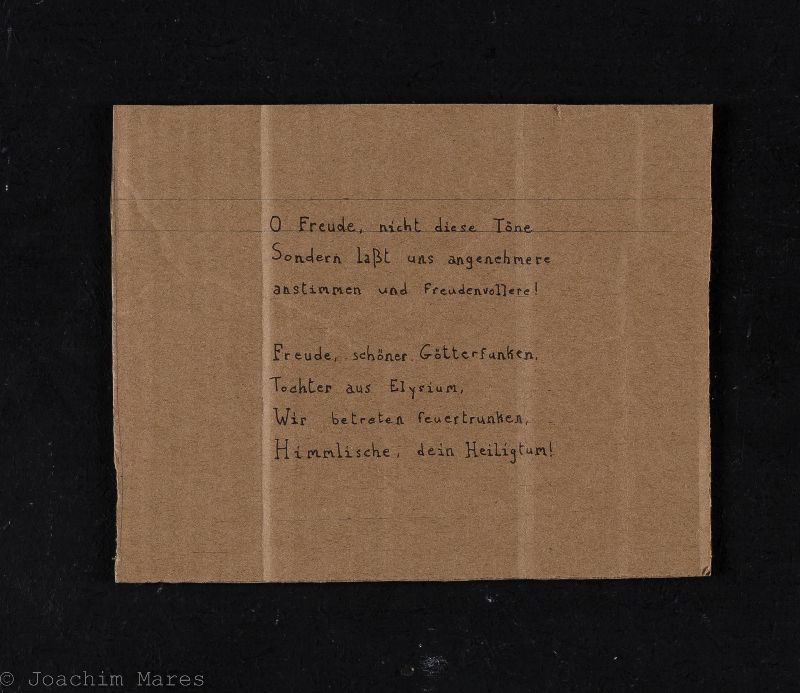 O Freude, nicht diese Töne
Sondern laßt uns angenehmere
anstimmen und freudenvollere!
Freude, schöner Götterfunken,
Tochter aus Elysium,
Wir betreten feuertrunken,
Himmlische, dein Heiligtum!
© Joachim Mares